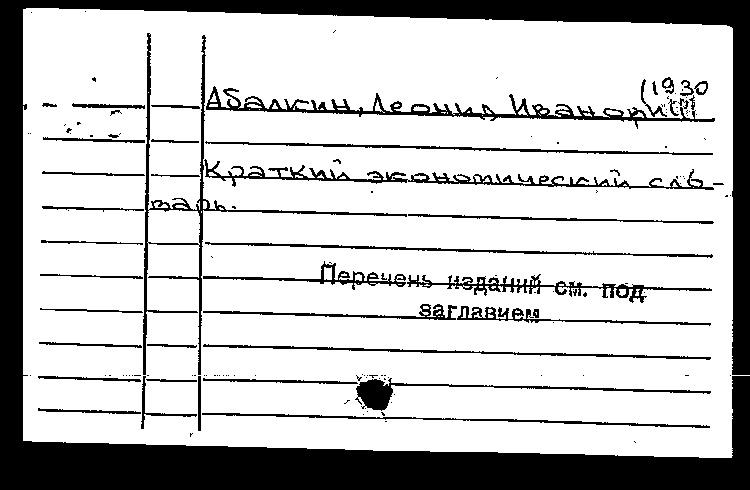 (1930
Абалкин, Леонид Иванович
Краткий экономический сло-
варь.
Перечень изданий см. под
заглавием